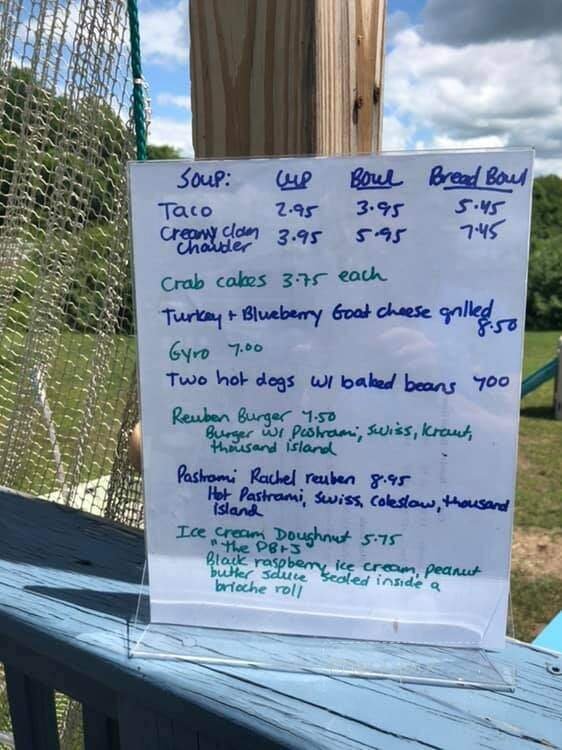 Soup: Cup Bowl Bread Bowl
Taco 2.95 3.95 5.45
Creamy clam 3.95 5.95 7.45
chowder
Crab cakes 3.75 each
Turkey + Blueberry Goat cheese grilled
8.50
Gyro 7.00
Two hot dogs w/ baked beans 700
Reuben Burger 7.50
Burger w/ Pastrami, Swiss, Kraut,
thousand island
Pastrami Rachel reuben 8.95
Hot Pastrami, Swiss, Coleslaw, thousand
Island
Ice cream Doughnut 5.75
"the PB+J"
Black raspberry ice cream, peanut
butter sauce sealed inside a
brioche roll